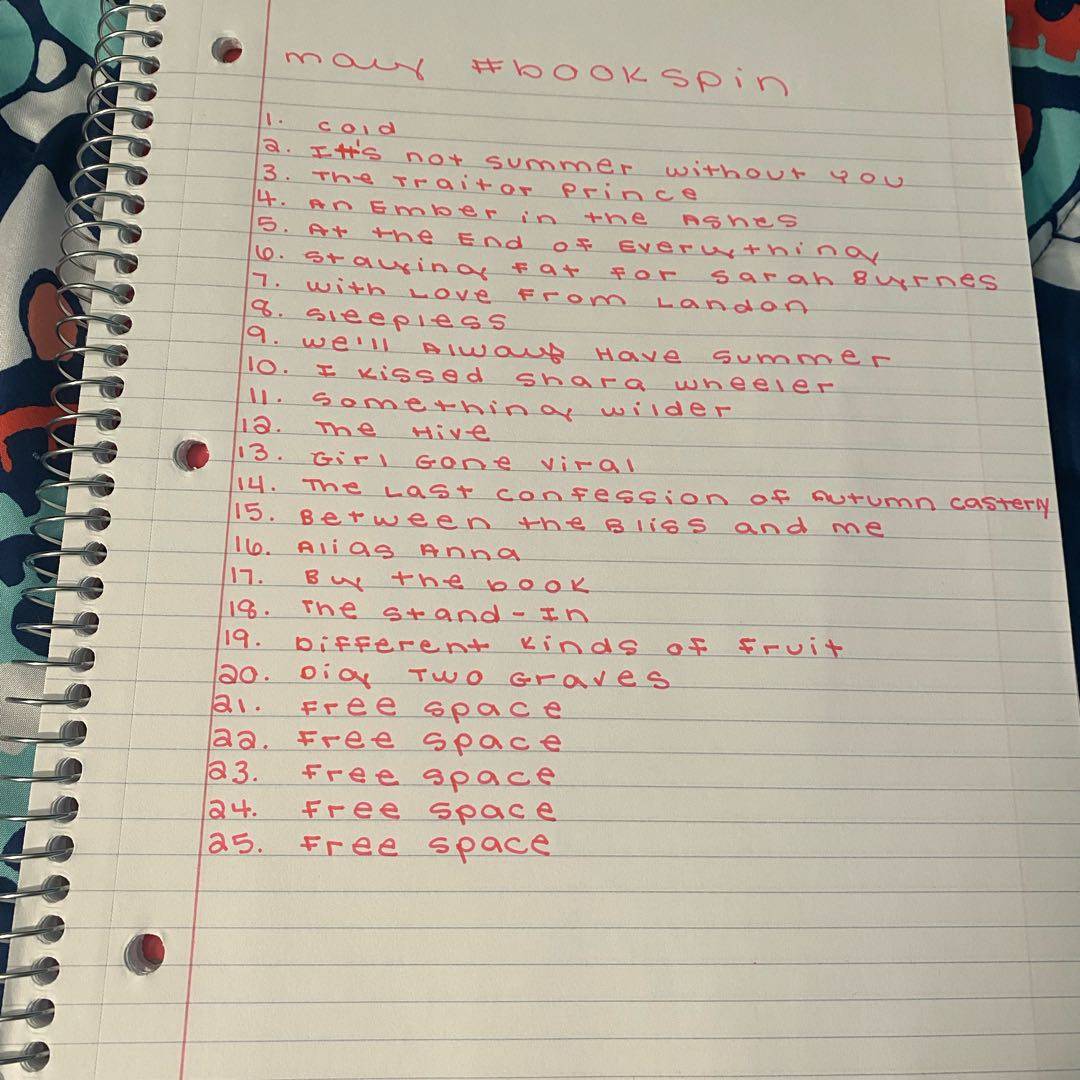 may #bookspin
1. cold
2. It's not summer without you
3. The Traitor Prince
4. An Ember in the Ashes
5. At the End of Everything
6. Staying Fat for Sarah Byrnes
7. With Love From Landon
8. Sleepless
9. We'll Always Have Summer
10. I Kissed Shara Wheeler
11. Something Wilder
12. The Hive
13. Girl Gone Viral
14. The Last Confession of Autumn Casterly
15. Between the Bliss and me
16. Alias Anna
17. Buy the book
18. The Stand-In
19. Different Kinds of Fruit
20. Dig Two Graves
21. Free space
22. Free space
23. Free space
24. Free space
25. Free space